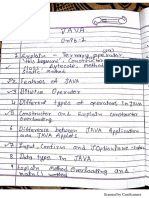 JAVA
Unit-2
Explain - Ternary operator,
this keyword, Constructor
Class, Bytecode, Method
Static method
2 Features of JAVA
3 Bitwise Operator
4 Different types of operators in JAVA
5 Constructor and Explain Constructor
Overloading
6 Difference between JAVA Application
and JAVA Applets
7 Input, Confirm and JOptionPane
8 Data type in JAVA
9 Explain Method Overloading and
method
Scanned by CamScanner